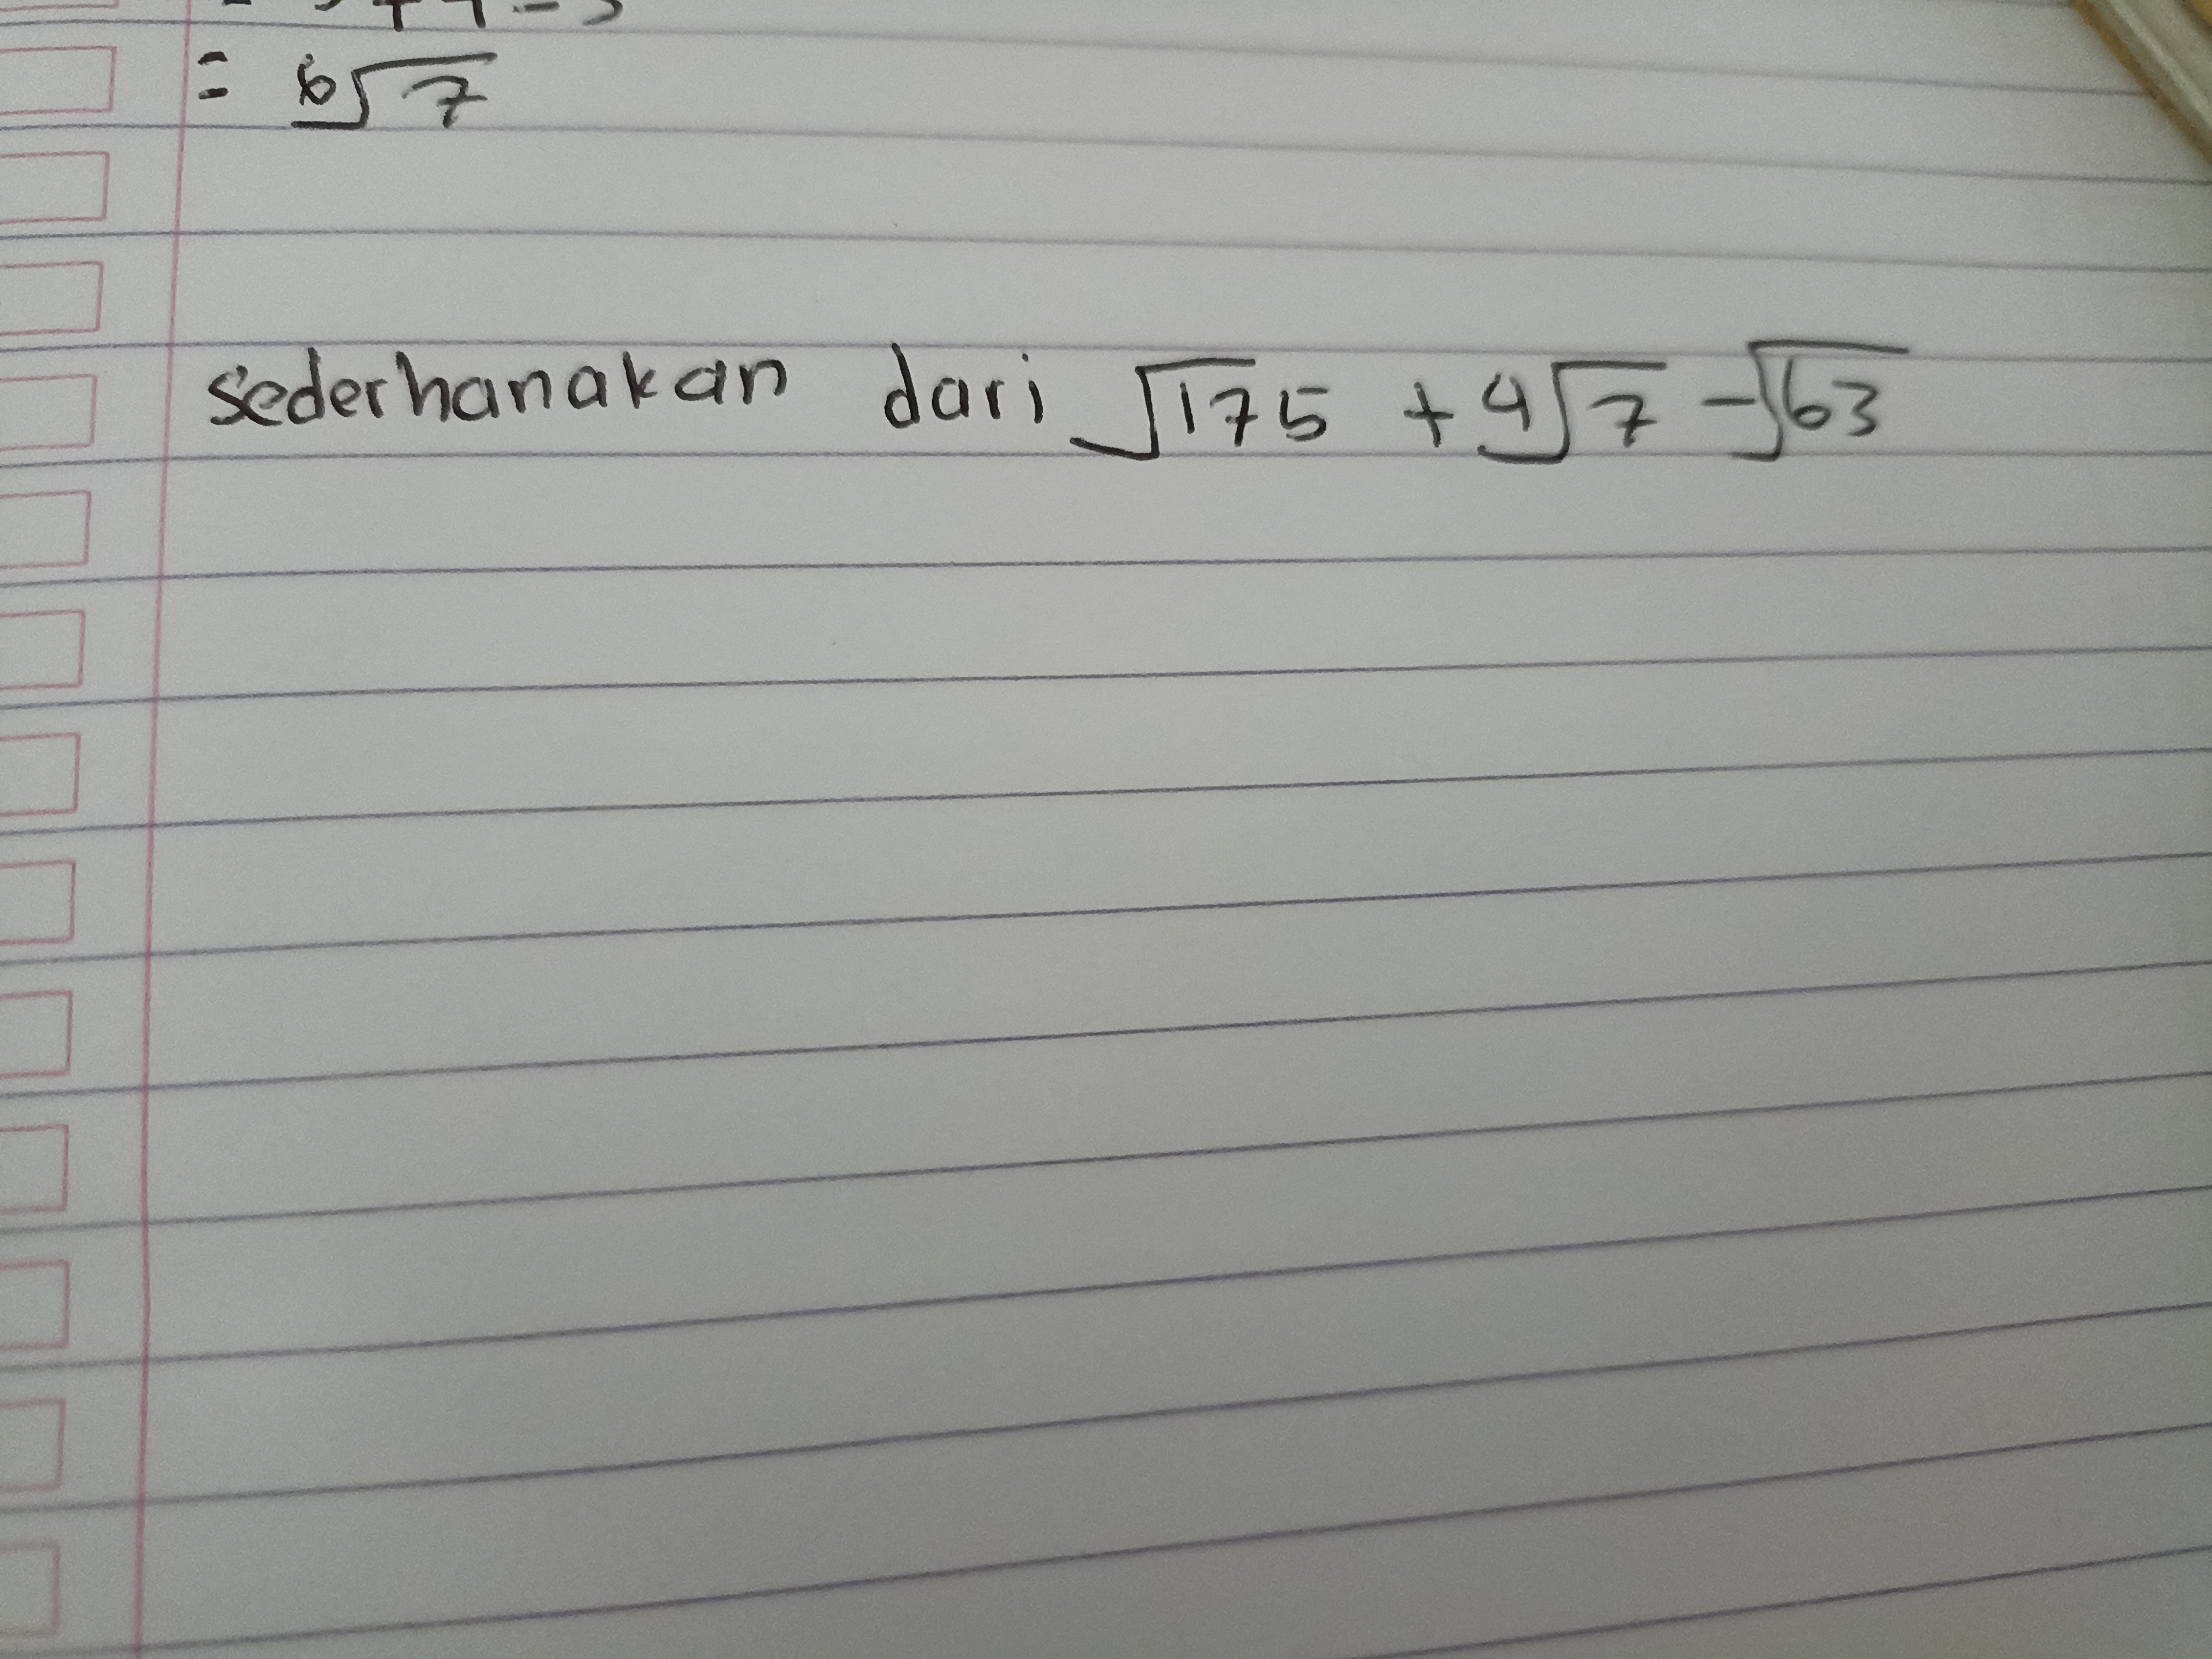 = 6√7
sederhanakan dari √175 + 4√7 - √63